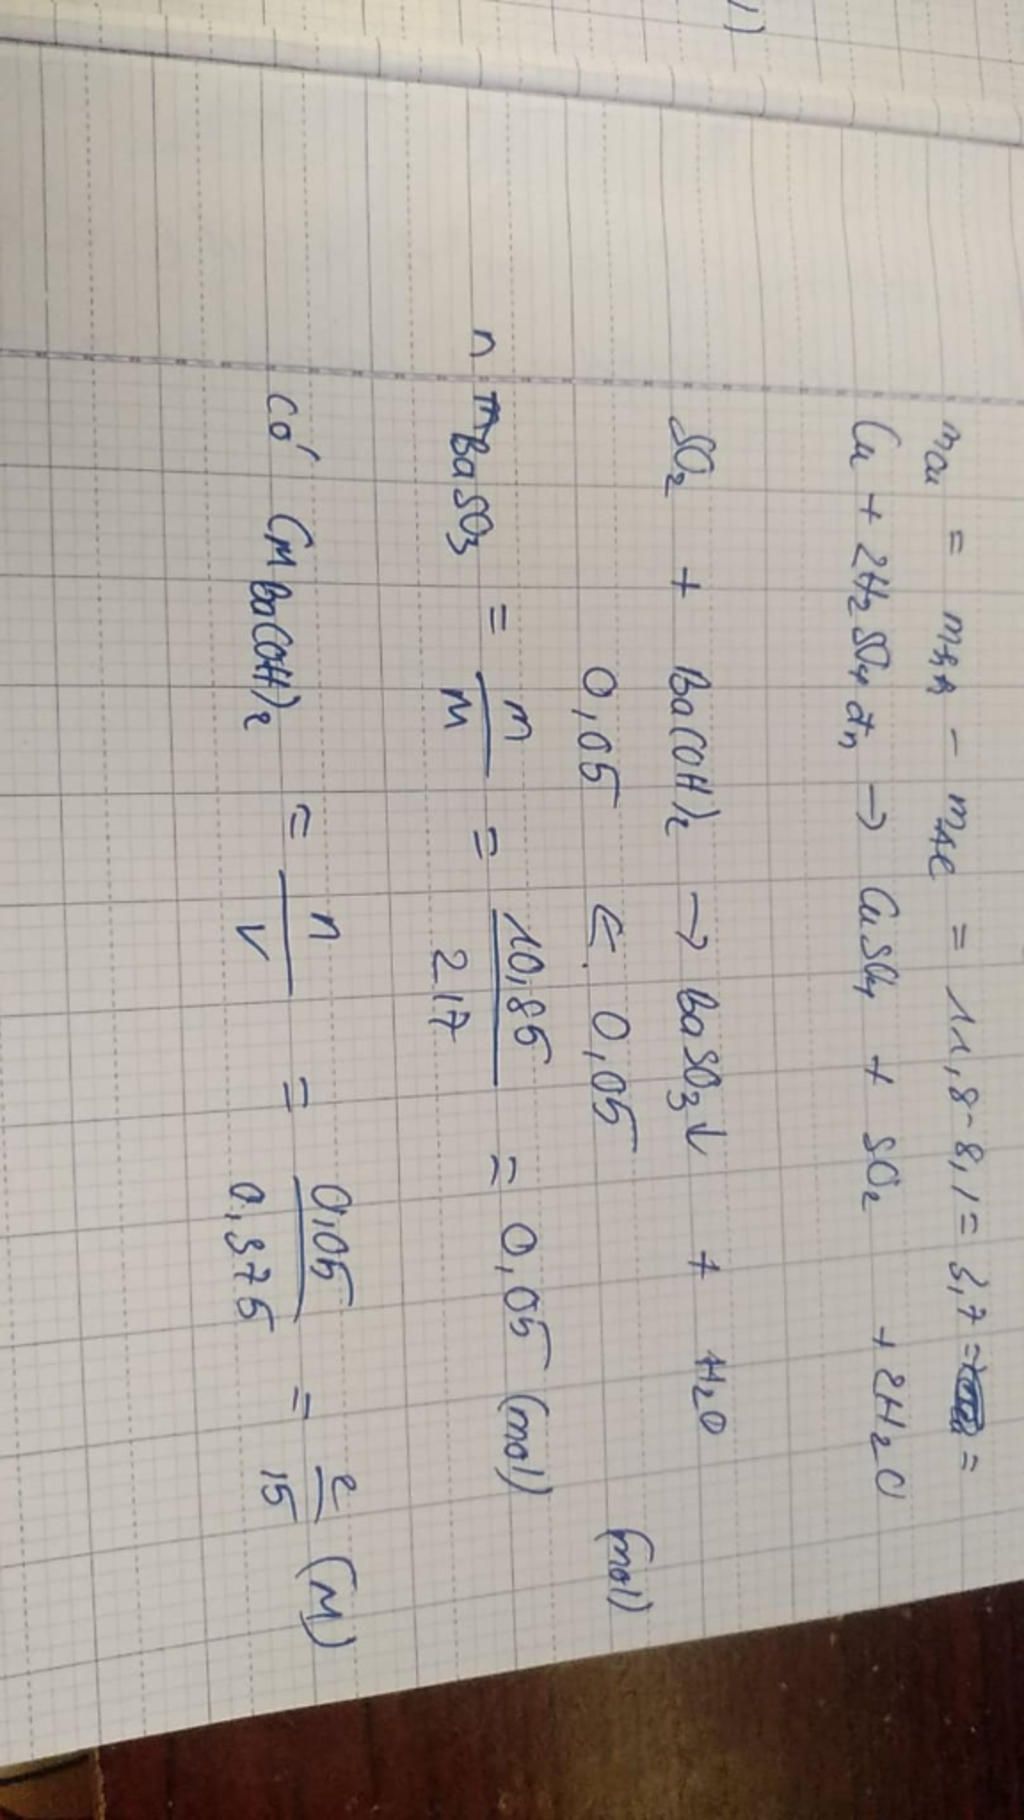 mCu = mhh - mAl = 11,8-8,1 = 3,7 = =
Cu + 2H2SO4 đn → CuSO4 + SO2 + 2H2O
SO2 + Ba(OH)2 → BaSO3↓ + H2O
0,05 ← 0,05 (mol)
n BaSO3 = m/M = 10,85/217 = 0,05 (mol)
Có CM Ba(OH)2 = n/V = 0,05/0,375 = 2/15 (M)